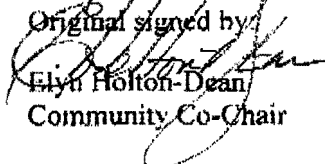 Original signed by:
Elyn Holton-Dean
Community Co-Chair